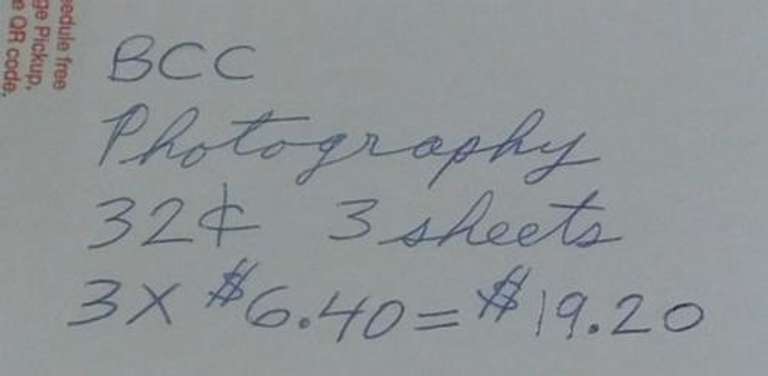 edule free
ge Pickup,
e QR code,
BCC
Photography
32¢ 3 sheets
3 x $6.40 = $19.20